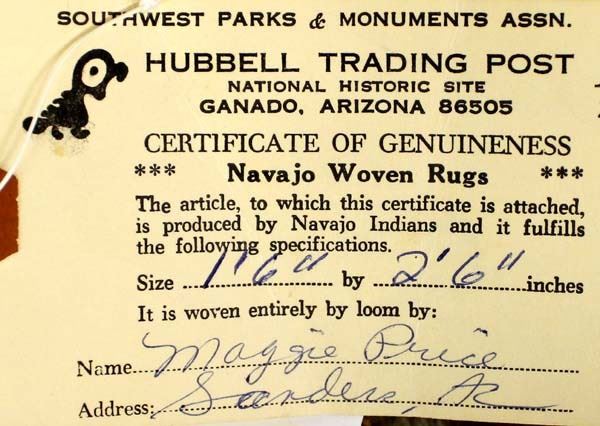 SOUTHWEST PARKS & MONUMENTS ASSN.
HUBBELL TRADING POST
NATIONAL HISTORIC SITE
GANADO, ARIZONA 86505
CERTIFICATE OF GENUINENESS
*** Navajo Woven Rugs ***
The article, to which this certificate is attached,
is produced by Navajo Indians and it fulfills
the following specifications.
Size 1'6" by 2'6" inches
It is woven entirely by loom by:
Name Maggie Price
Address: Sanders, Az